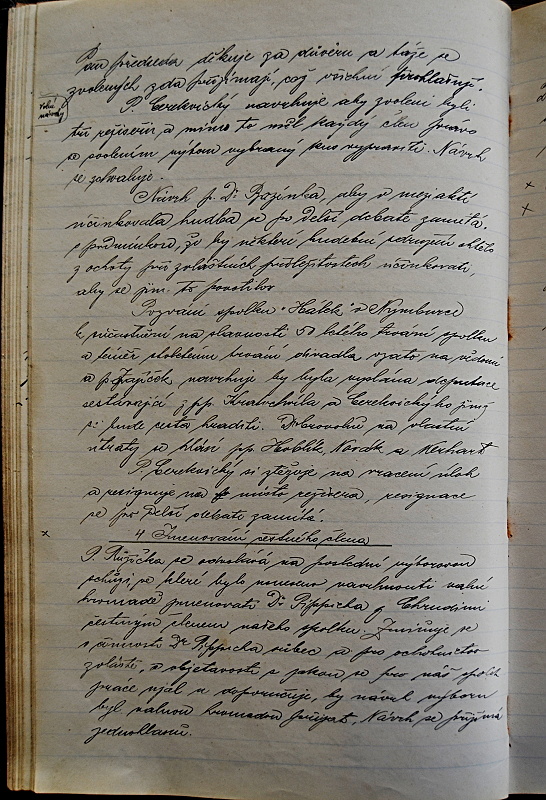 Pan předseda děkuje za důvěru a táže se
zvolených zda přijímají, což všichni prohlašují.
P. Cerekvický navrhuje aby zvoleni byli
tři režiseři a mimo to měl každý člen právo
a svolením výboru vybraný kus vypraviti. Návrh
se schvaluje.
Návrh p. Dr Bazinka, aby v meziaktí
účinkovala hudba se po delší debatě zamítá,
s podmínkou, že by některé hudební sdružení chtělo
z ochoty při zvláštních příležitostech účinkovati,
aby se jim to povolilo
Pozvání spolku "Hálek" v Nymburce
k súčastnění na slavnosti 50 letého trvání spolku
a téměř stoletém trvání divadla vzato na vědomí
a p. Zajíček navrhuje by byla vyslána deputace
sestávající z pp. Kratochvíla a Cerekvického jimž
se bude cesta hraditi. Dobrovolně na vlastní
útraty se hlásí pp. Hoblík, Novák a Kerhart
P. Cerekvický si stěžuje na vracení úloh
a resignuje na místo režisera, resignace
se po delší debatě zamítá.
4 Jmenování čestného člena
P. Růžička se odvolává na poslední výborovou
schůzi, ve které bylo usneseno navrhnouti valné
hromadě jmenovati Dr. Pippicha z Chrudimi
čestným členem našeho spolku. Zmiňuje se
o činnosti Dr. Pippicha vůbec a pro ochotnictvo
zvláště, o objetavosti s jakou se pro náš spolek
práce ujal a doporučuje, by návrh výboru
byl valnou hromadou přijat. Návrh se přijímá
jednohlasně.